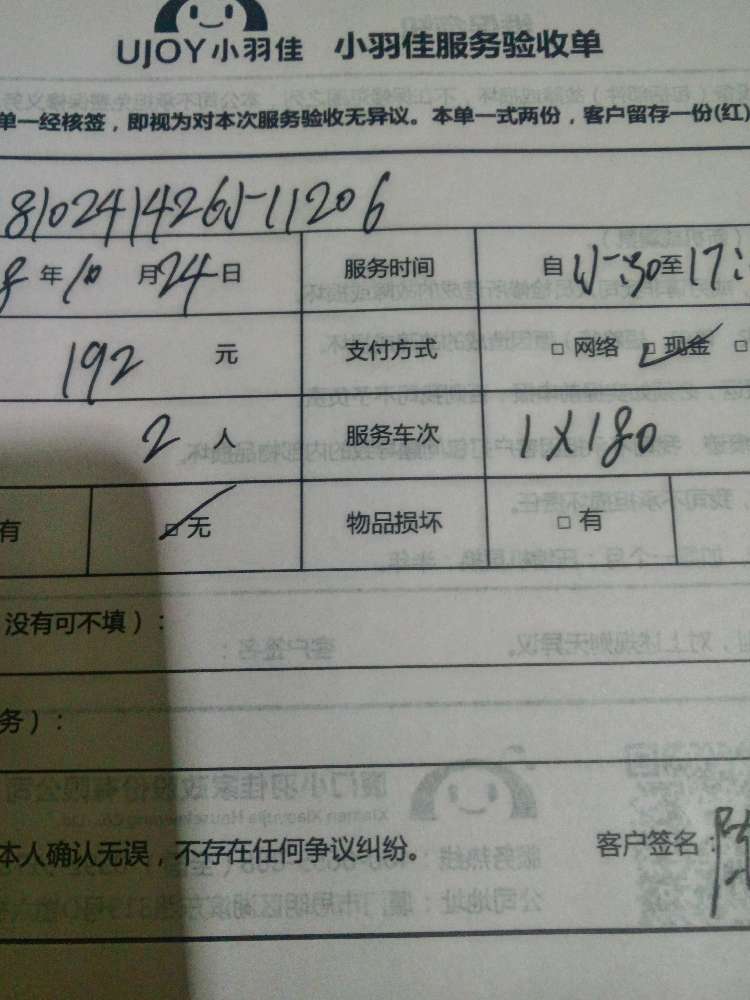 UJOY小羽佳 小羽佳服务验收单
单一经核签，即视为对本次服务验收无异议。本单一式两份，客户留存一份(红)
8102414265-11206
8年10月24日 服务时间 自15:30至17:
192元 支付方式 □ 网络 □ 现金 □
2人 服务车次 1X180
有 □ 无 物品损坏 □ 有
没有可不填）：
务）：
本人确认无误，不存在任何争议纠纷。 客户签名：